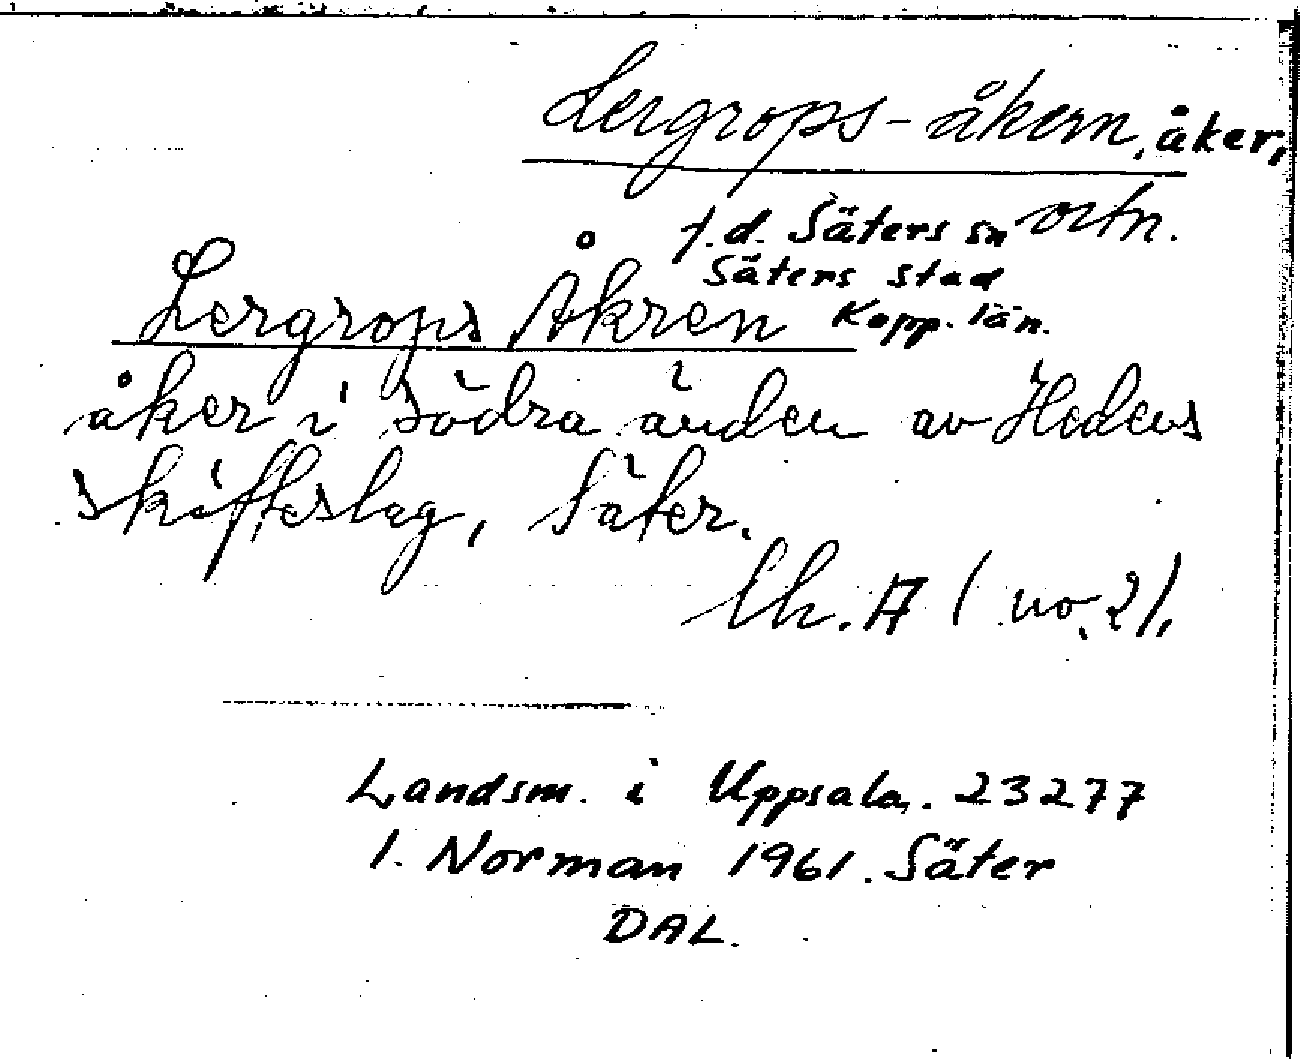 Lergrops-åkern, åker,
ortn.
f.d. Säters sn
Säters stad
Kopp. län.
Lergrops Åkren
åker i södra änden av Hedens
skifteslag, Säter.
Ch. A (no. 2).
Landsm. i Uppsala. 23277
I. Norman 1961. Säter
DAL.